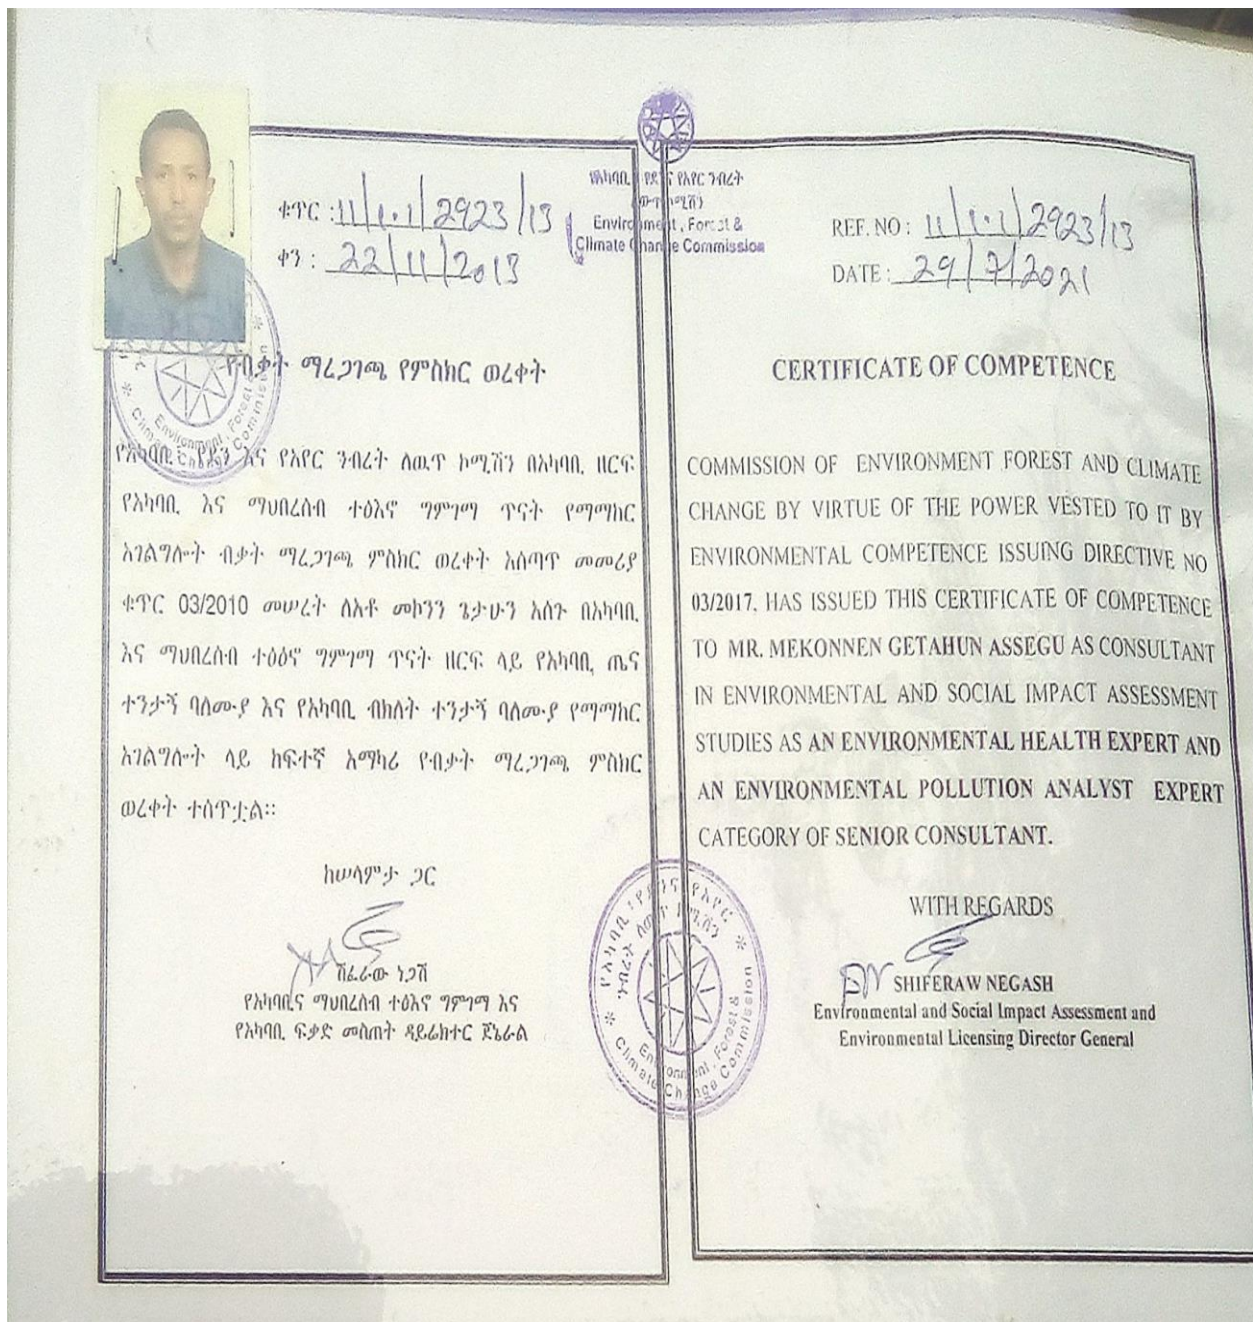 Environment, Forest &
Climate Change Commission
ቁጥር : 11/1.1/2923/13
ቀን : 22/11/2013
የብቃት ማረጋገጫ የምስክር ወረቀት
Environment, Forest &
Climate Change Commission
የአካባቢ የደን እና የአየር ንብረት ለዉጥ ኮሚሽን በአካባቢ ዘርፍ
የአካባቢ እና ማህበረሰብ ተፅእኖ ግምገማ ጥናት የማማከር
አገልግሎት ብቃት ማረጋገጫ ምስክር ወረቀት አሰጣጥ መመሪያ
ቁጥር 03/2010 መሠረት ለአቶ መኮንን ጌታሁን አሰጉ በአካባቢ
እና ማህበረሰብ ተፅዕኖ ግምገማ ጥናት ዘርፍ ላይ የአካባቢ ጤና
ተንታኝ ባለሙያ እና የአካባቢ ብክለት ተንታኝ ባለሙያ የማማከር
አገልግሎት ላይ ከፍተኛ አማካሪ የብቃት ማረጋገጫ ምስክር
ወረቀት ተሰጥቷል፡፡
ከሠላምታ ጋር
ሽፈራው ነጋሽ
የአካባቢና ማህበረሰብ ተፅእኖ ግምገማ እና
የአካባቢ ፍቃድ መስጠት ዳይሬክተር ጀኔራል
REF. NO : 11/1.1/2923/13
DATE : 29/7/2021
CERTIFICATE OF COMPETENCE
COMMISSION OF ENVIRONMENT FOREST AND CLIMATE
CHANGE BY VIRTUE OF THE POWER VESTED TO IT BY
ENVIRONMENTAL COMPETENCE ISSUING DIRECTIVE NO
03/2017, HAS ISSUED THIS CERTIFICATE OF COMPETENCE
TO MR. MEKONNEN GETAHUN ASSEGU AS CONSULTANT
IN ENVIRONMENTAL AND SOCIAL IMPACT ASSESSMENT
STUDIES AS AN ENVIRONMENTAL HEALTH EXPERT AND
AN ENVIRONMENTAL POLLUTION ANALYST EXPERT
CATEGORY OF SENIOR CONSULTANT.
WITH REGARDS
SHIFERAW NEGASH
Environmental and Social Impact Assessment and
Environmental Licensing Director General
Environment, Forest &
Climate Change Commission